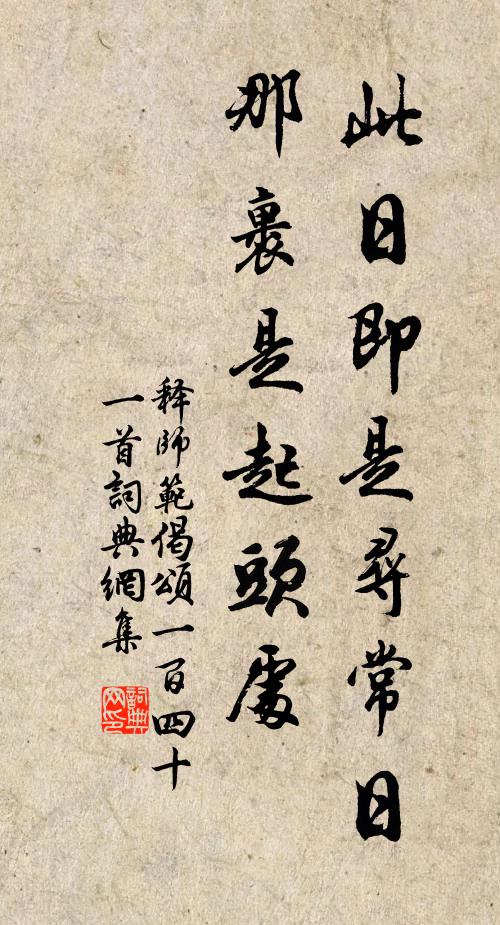 此日即是尋常日
那裏是起頭處
释師範偈頌一百四十
一首詞典網集
詞典
网印